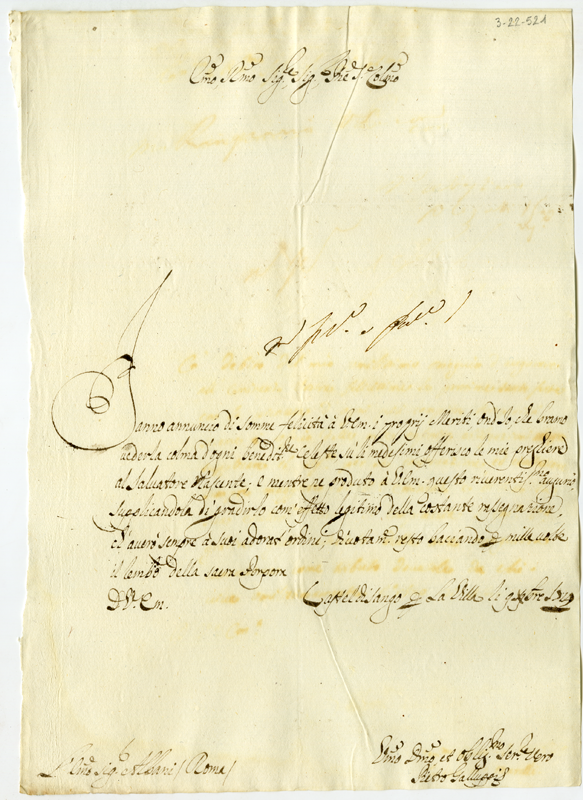 3-22-521
Em̃o, Rmo Sig.re Sig.re
Fanno annuncio di somme felicità à V. Em. i proprij Meriti, ond'Io, che bramo
vederla colma d'ogni bened.ne Celeste sù li medesimi offerisco le mie preghiere
al Salvatore Nascente, e mentre ne produco à V. Em. questo riverentiss.mo augurio,
supplicandola di gradirlo com'effetto legitimo della costante rassegnazione,
ch'averò sempre à suoi adorati ordini; divotam. resto baciando mille volte
il lembo della sacra Porpora
D. V. Em. Castel di Sango La Villa li
Em̃o Sig. Albani (Roma)
Umo Dmo et Obblig.mo Ser.re Vero
Pietro